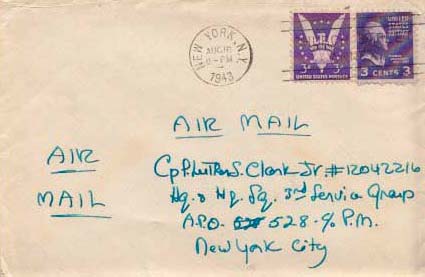 NEW YORK, N.Y.
AUG 18
6-PM
1943
WIN THE WAR
3¢ 3¢
UNITED STATES POSTAGE
UNITED STATES
POSTAGE
3 CENTS 3
AIR MAIL
AIR
MAIL
Cpl Luther S. Clark Jr #12042216
Hq. & Hq. Sq. 3rd Service Group
A.P.O. 528 - % P.M.
New York City